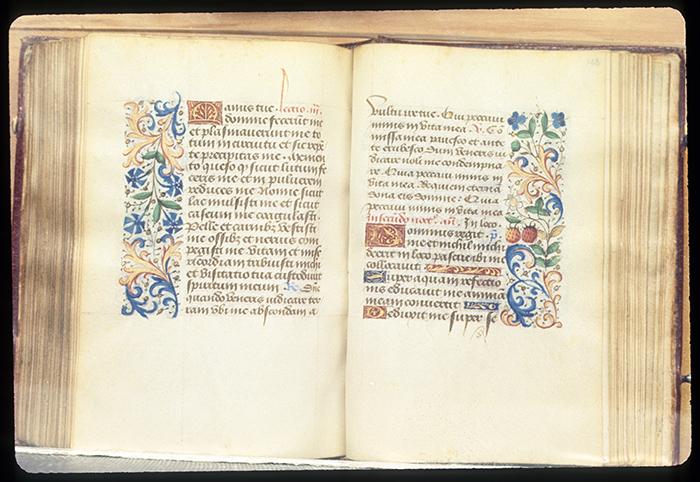 Manus tue Lectio iii.
domine fecerunt me
et plasmaverunt me to
tum in circuitu et sic repe
te precipitas me. Memen
to queso q̄ sicut lutum fe
ceris me et in pulverem
reduces me. Nonne sicut
lac mulsisti me et sicut
caseum me coagulasti.
Pelle et carnibz vestisti
me ossibz et nervis com
pegisti me. Vitam et mise
ricordiam tribuisti michi
et visitatio tua custodivit
spiritum meum. R. Dñe
quando veneris iudicare ter
ram ubi me abscondam a
vultu ire tue. Quia peccavi
nimis in vita mea. V. Co
missa mea pavesco et ante
te erubesco Dum veneris iu
dicare noli me condempna
re. Quia peccavi nimis in
vita mea. Requiem eternā
dona eis domine. Quia
peccavi nimis in vita mea
In secundo noct. añ. In loco. p̄.
Dominus regit
me et michil michi
deerit in loco pascue ibi me
collocavit
Super aquam refectio
nis educavit me animā
meam convertit
Deduxit me super se